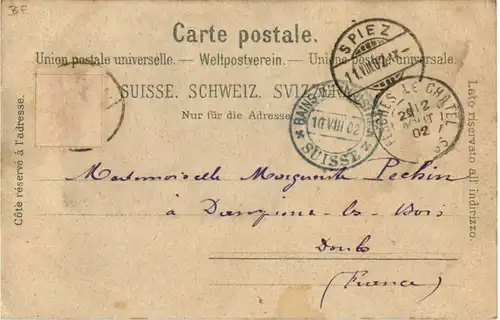 BE
Carte postale.
Union postale universelle. — Weltpostverein. — Unione postale universale.
SUISSE. SCHWEIZ. SVIZZERA.
Nur für die Adresse.
Côté réservé à l'adresse.
Lato riservato all' indirizzo.
SPIEZ
11.VIII.02
BAINS
10 VIII 02
SUISSE
LE CHATEL
12
AOUT
02
Mademoiselle Marguerite Pechin
à Dampierre-les-Bois
Doubs
(France)